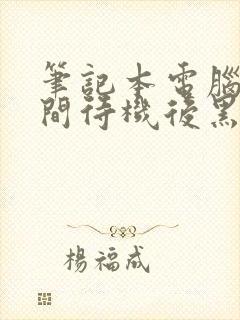 筆記本電腦
間待機後黑
楊福成